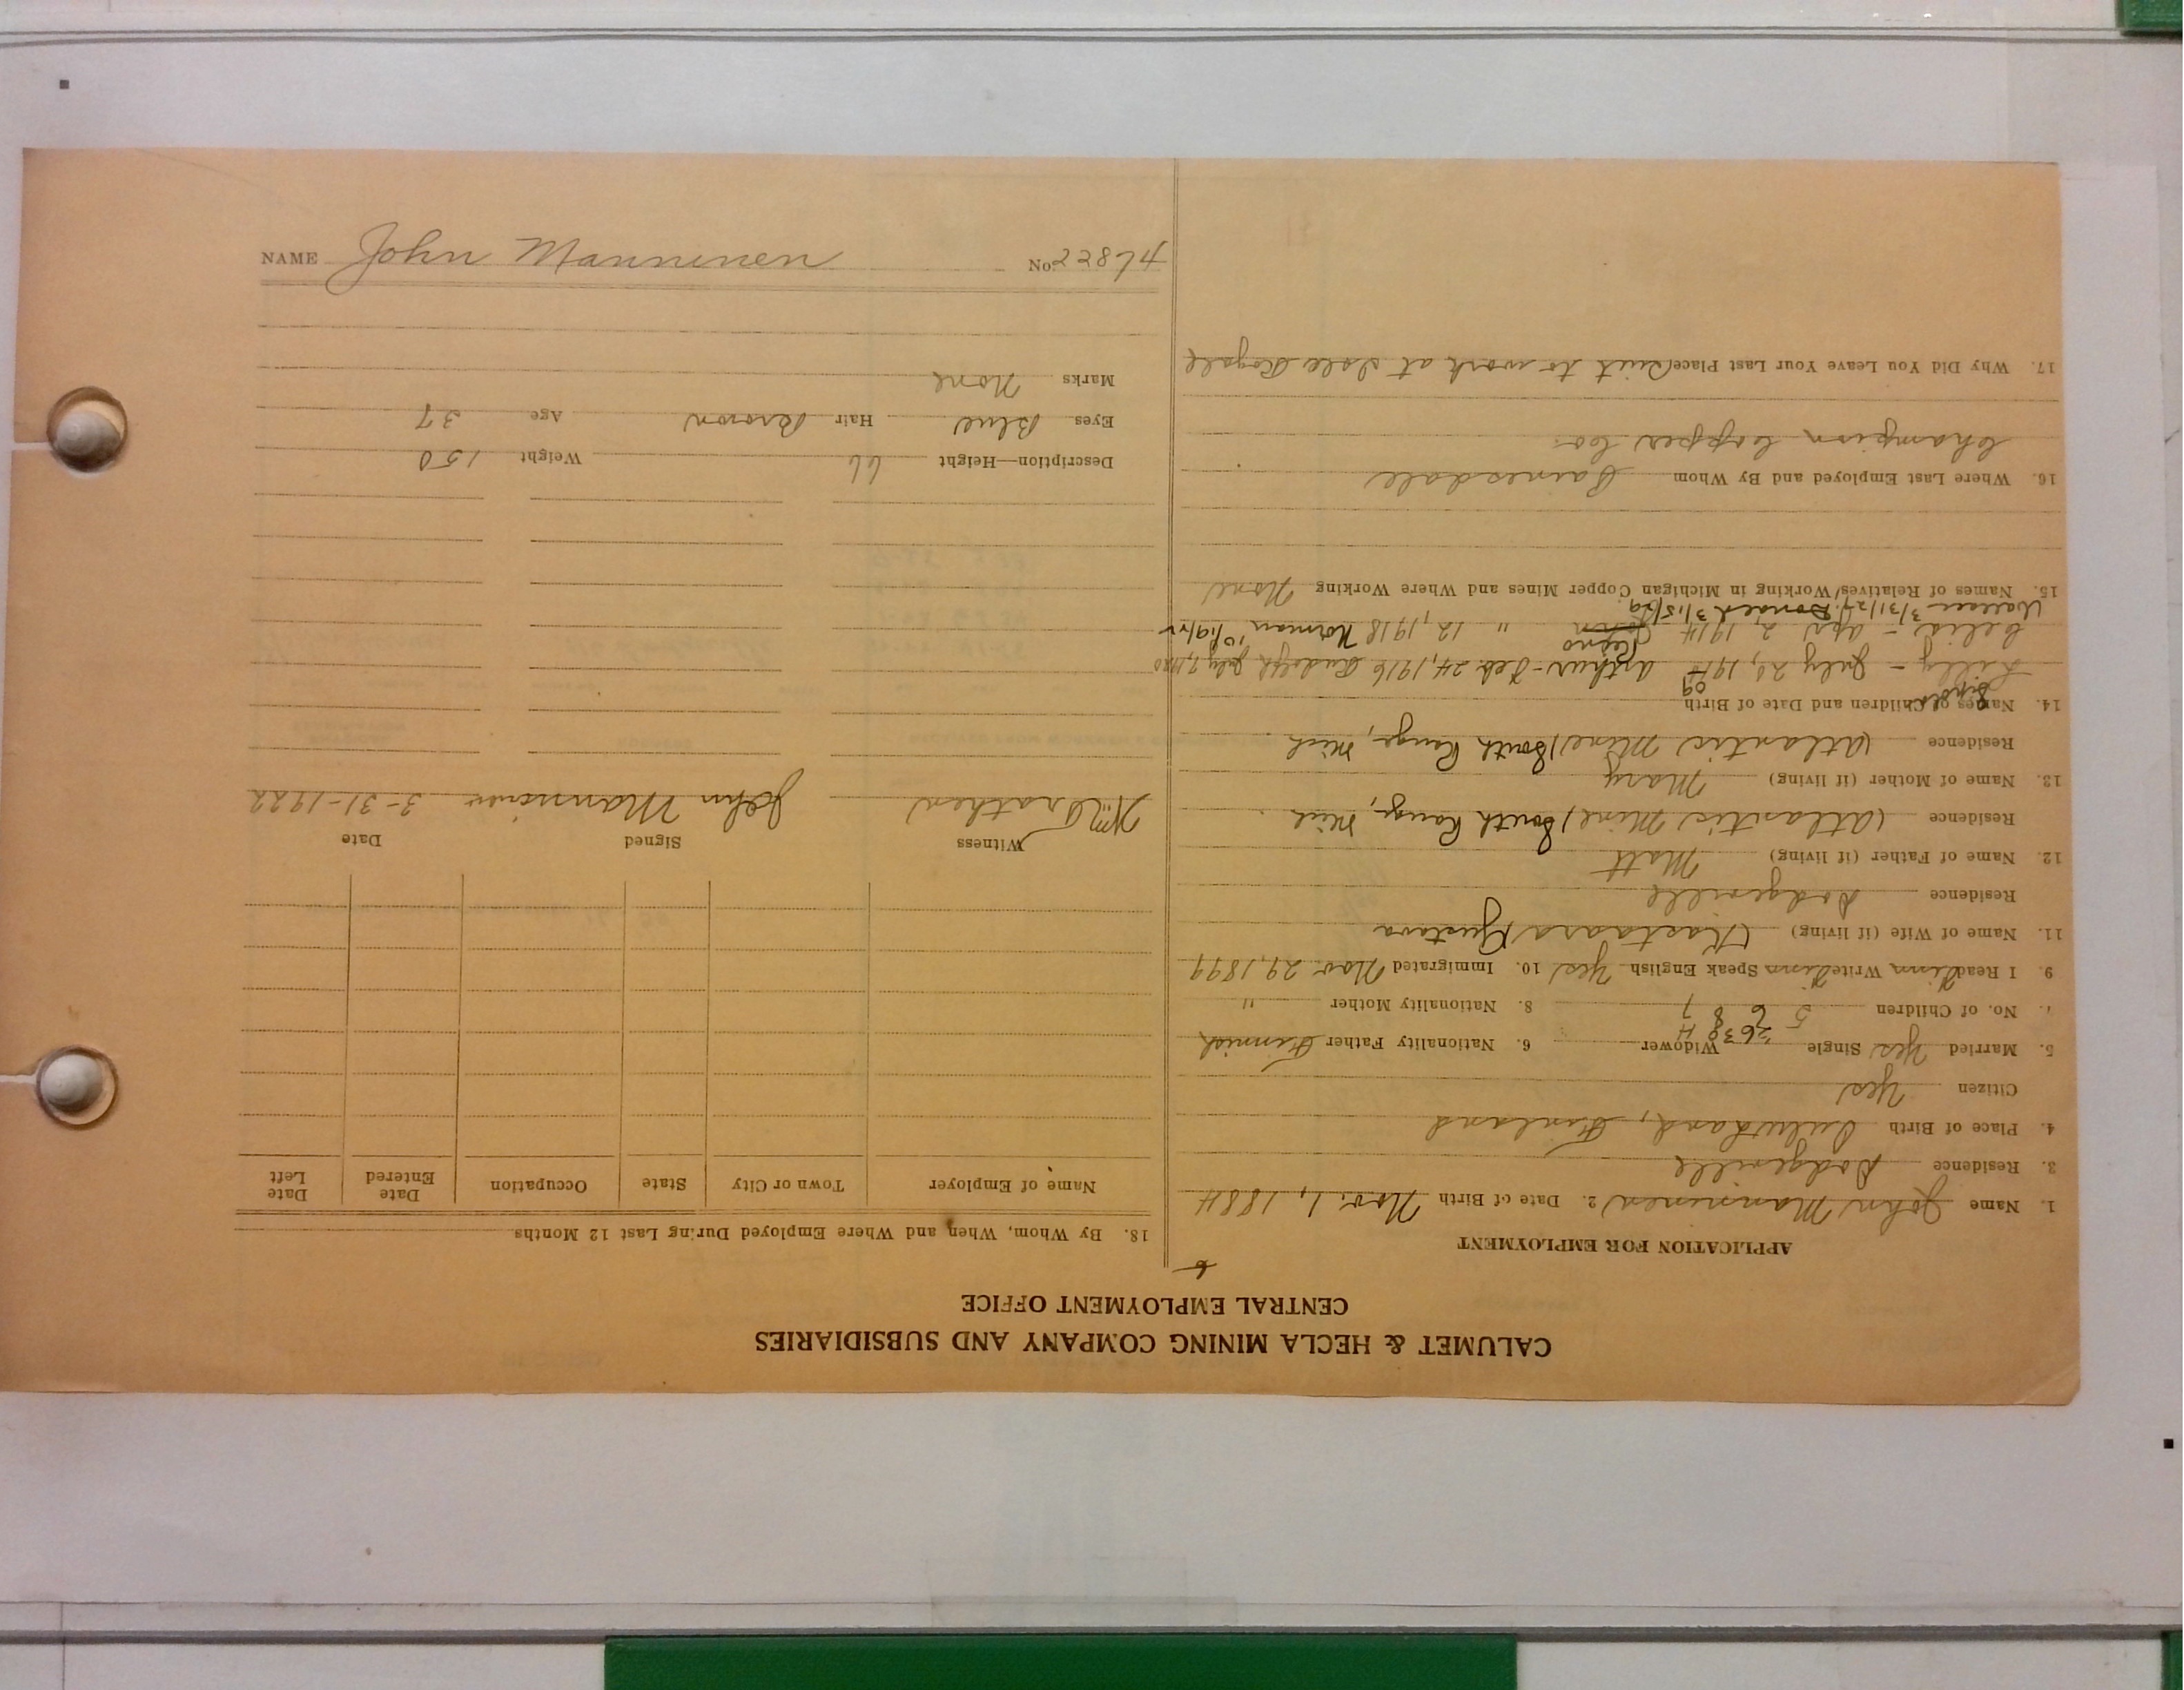 CALUMET & HECLA MINING COMPANY AND SUBSIDIARIES
CENTRAL EMPLOYMENT OFFICE
APPLICATION FOR EMPLOYMENT
1. Name John Manninen 2. Date of Birth Nov. 1, 1884
3. Residence Dodgeville
4. Place of Birth Finland
Citizen Yes
5. Married Yes Single Widower 6. Nationality Father Finnish
7. No. of Children 5 6 8 7 8. Nationality Mother "
9. I Read Finn Write Finn Speak English Yes 10. Immigrated Nov 29, 1899
11. Name of Wife (if living) (Kastaara) Gustava
Residence Dodgeville
12. Name of Father (if living) Matt
Residence (Atlantic Mine) South Range, Mich
13. Name of Mother (if living) Mary
Residence (Atlantic Mine) South Range, Mich
14. Names of Children and Date of Birth
Lilly - July 29, 1910 09 Arthur - Feb 24, 1916 Rudolph July 7, 1920
Reino
- Apr 2 1914 John " 12, 1918 Norman 10/19/22
Wallace 3/31/27 Donald 3/15/29
15. Names of Relatives Working in Michigan Copper Mines and Where Working None
16. Where Last Employed and By Whom Painesdale
Champion Copper Co.
17. Why Did You Leave Your Last Place Quit to work at Isle Royale
18. By Whom, When and Where Employed During Last 12 Months
Name of Employer Town or City State Occupation Date Entered Date Left
Witness Signed Date
Wm John Manninen 3-31-1922
Description—Height 66 Weight 150
Eyes Blue Hair Brown Age 37
Marks None
NAME John Manninen No. 22864